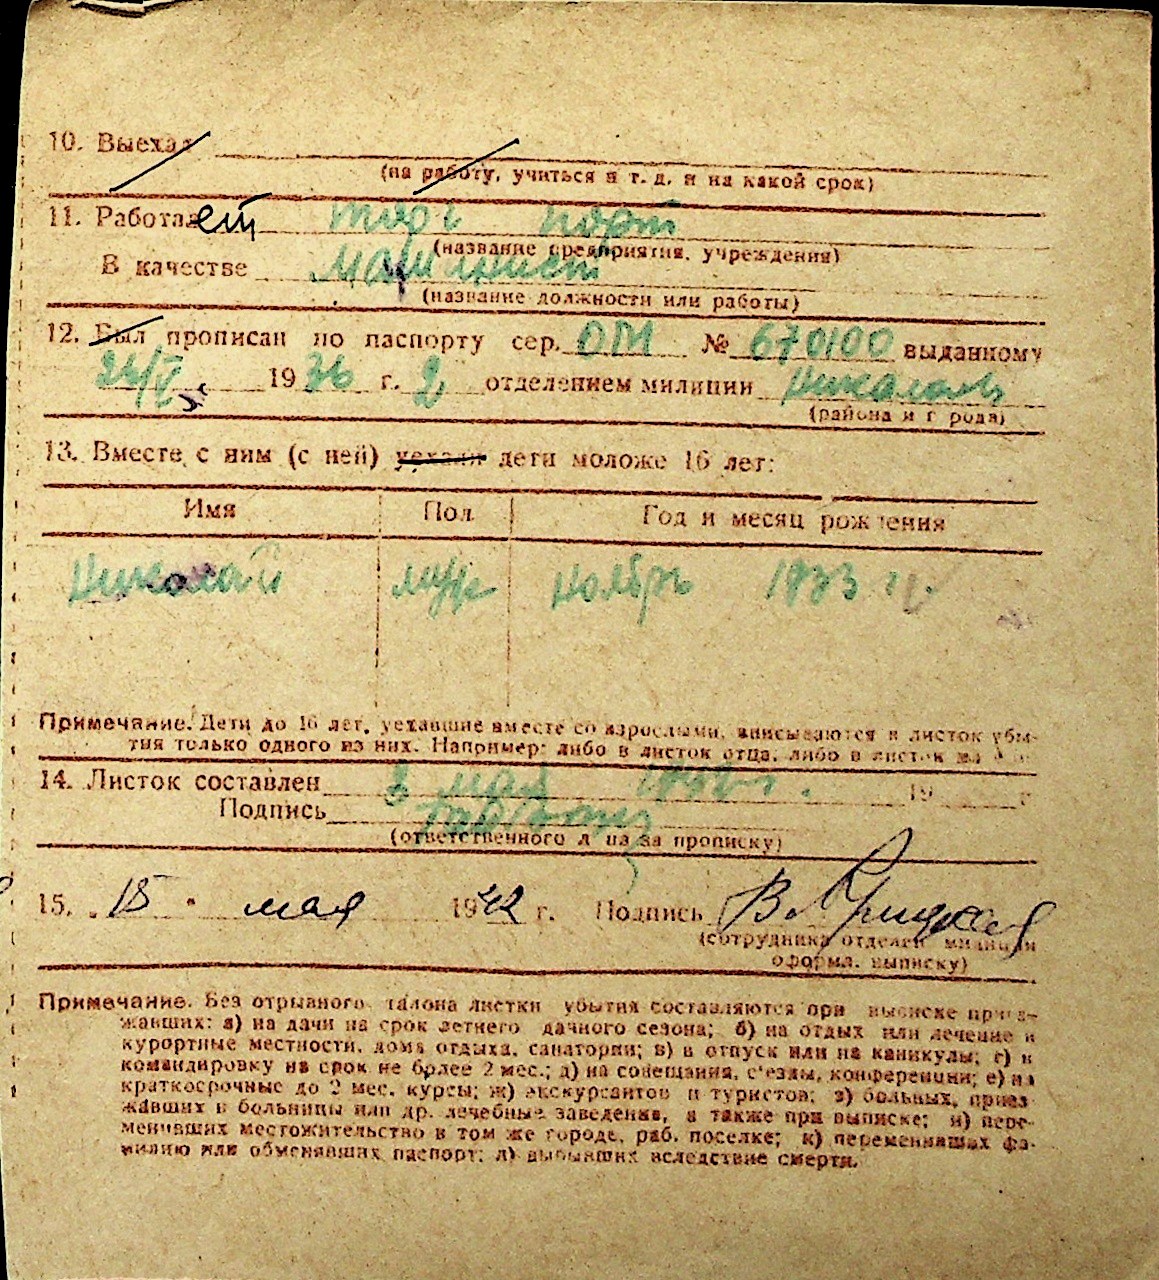 10. Выехал
(на работу, учиться и т. д. и на какой срок)
11. Работает торг порт
(название предприятия, учреждения)
В качестве машинист
(название должности или работы)
12. Был прописан по паспорту сер. № 670100 выданному
1936 г. 2 отделением милиции
(района и города)
13. Вместе с ним (с ней) уехали дети моложе 16 лет:
Имя Пол Год и месяц рождения
Николай муж ноябрь 1933 г.
Примечание. Дети до 16 лет, уехавшие вместе со взрослыми, вписываются в листок убы-
тия только одного из них. Например: либо в листок отца, либо в листок
14. Листок составлен 8 мая 19 г.
Подпись
(ответственного лица за прописку)
15. 15 мая 1942 г. Подпись
(сотрудника отделен. милиции
оформ. выписку)
Примечание. Без отрывного талона листки убытия составляются при выписке приез-
жавших: а) на дачи на срок летнего дачного сезона; б) на отдых или лечение в
курортные местности, дома отдыха, санатории; в) в отпуск или на каникулы; г) в
командировку на срок не более 2 мес.; д) на совещания, с'езды, конференции; е) на
краткосрочные до 2 мес. курсы; ж) экскурсантов и туристов; з) больных, приез-
жавших в больницы или др. лечебные заведения, а также при выписке; и) пере-
менивших местожительство в том же городе, раб. поселке; к) переменивших фа-
милию или обменявших паспорт; л) выбывших вследствие смерти.